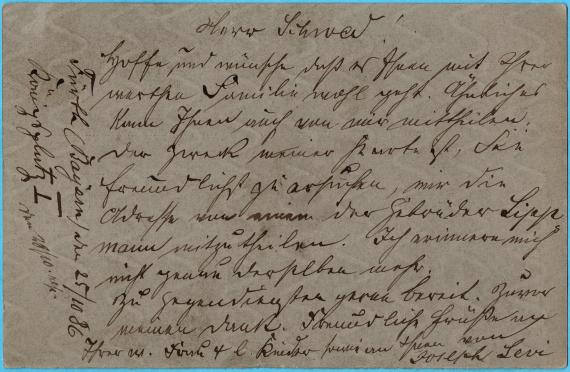 Herr Schwad!
Hoffe und wünsche daß es Ihnen mit Ihrer
werthen Familie wohl geht. Ähnliches
kann Ihnen auch von mir mittheilen.
Der Zweck meiner Karte ist, Sie
freundlichst zu ersuchen, mir die
Adresse von einem der Gebrüder Lipp
mann mitzutheilen. Ich erinnere mich
nicht genau derselben mehr.
Zu Gegendiensten gerne bereit. Zuvor
meinen Dank. Freundliche Grüße an
Ihrer w. Frau & l. Kinder sowie an Ihnen von
Joseph Levi
Fürth (Bayern) den 25/10 86
Königsplatz 1